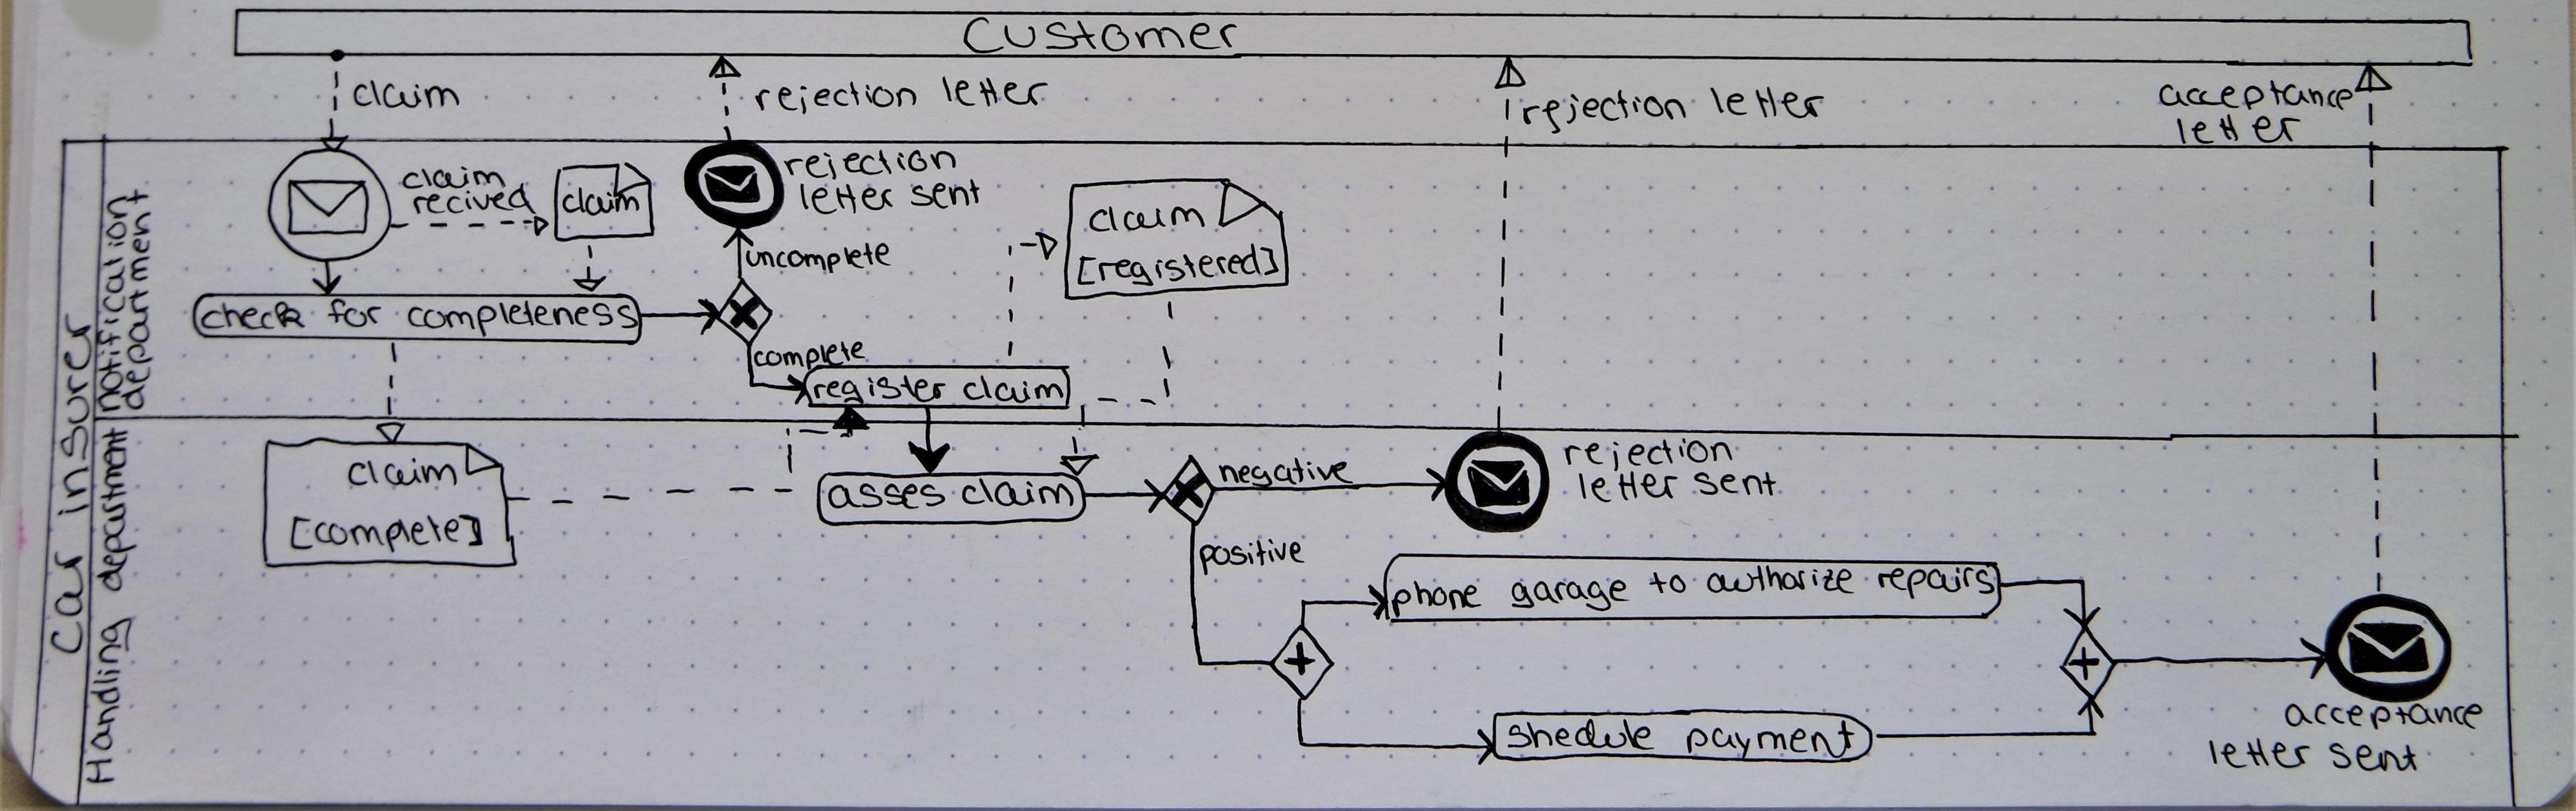 Customer
claim
rejection letter
rejection letter
acceptance
letter
car insurer
notification
department
Handling department
claim
recived
claim
rejection
letter sent
claim
[registered]
uncomplete
check for completeness
complete
register claim
claim
[complete]
asses claim
negative
rejection
letter sent
positive
phone garage to authorize repairs
shedule payment
acceptance
letter sent